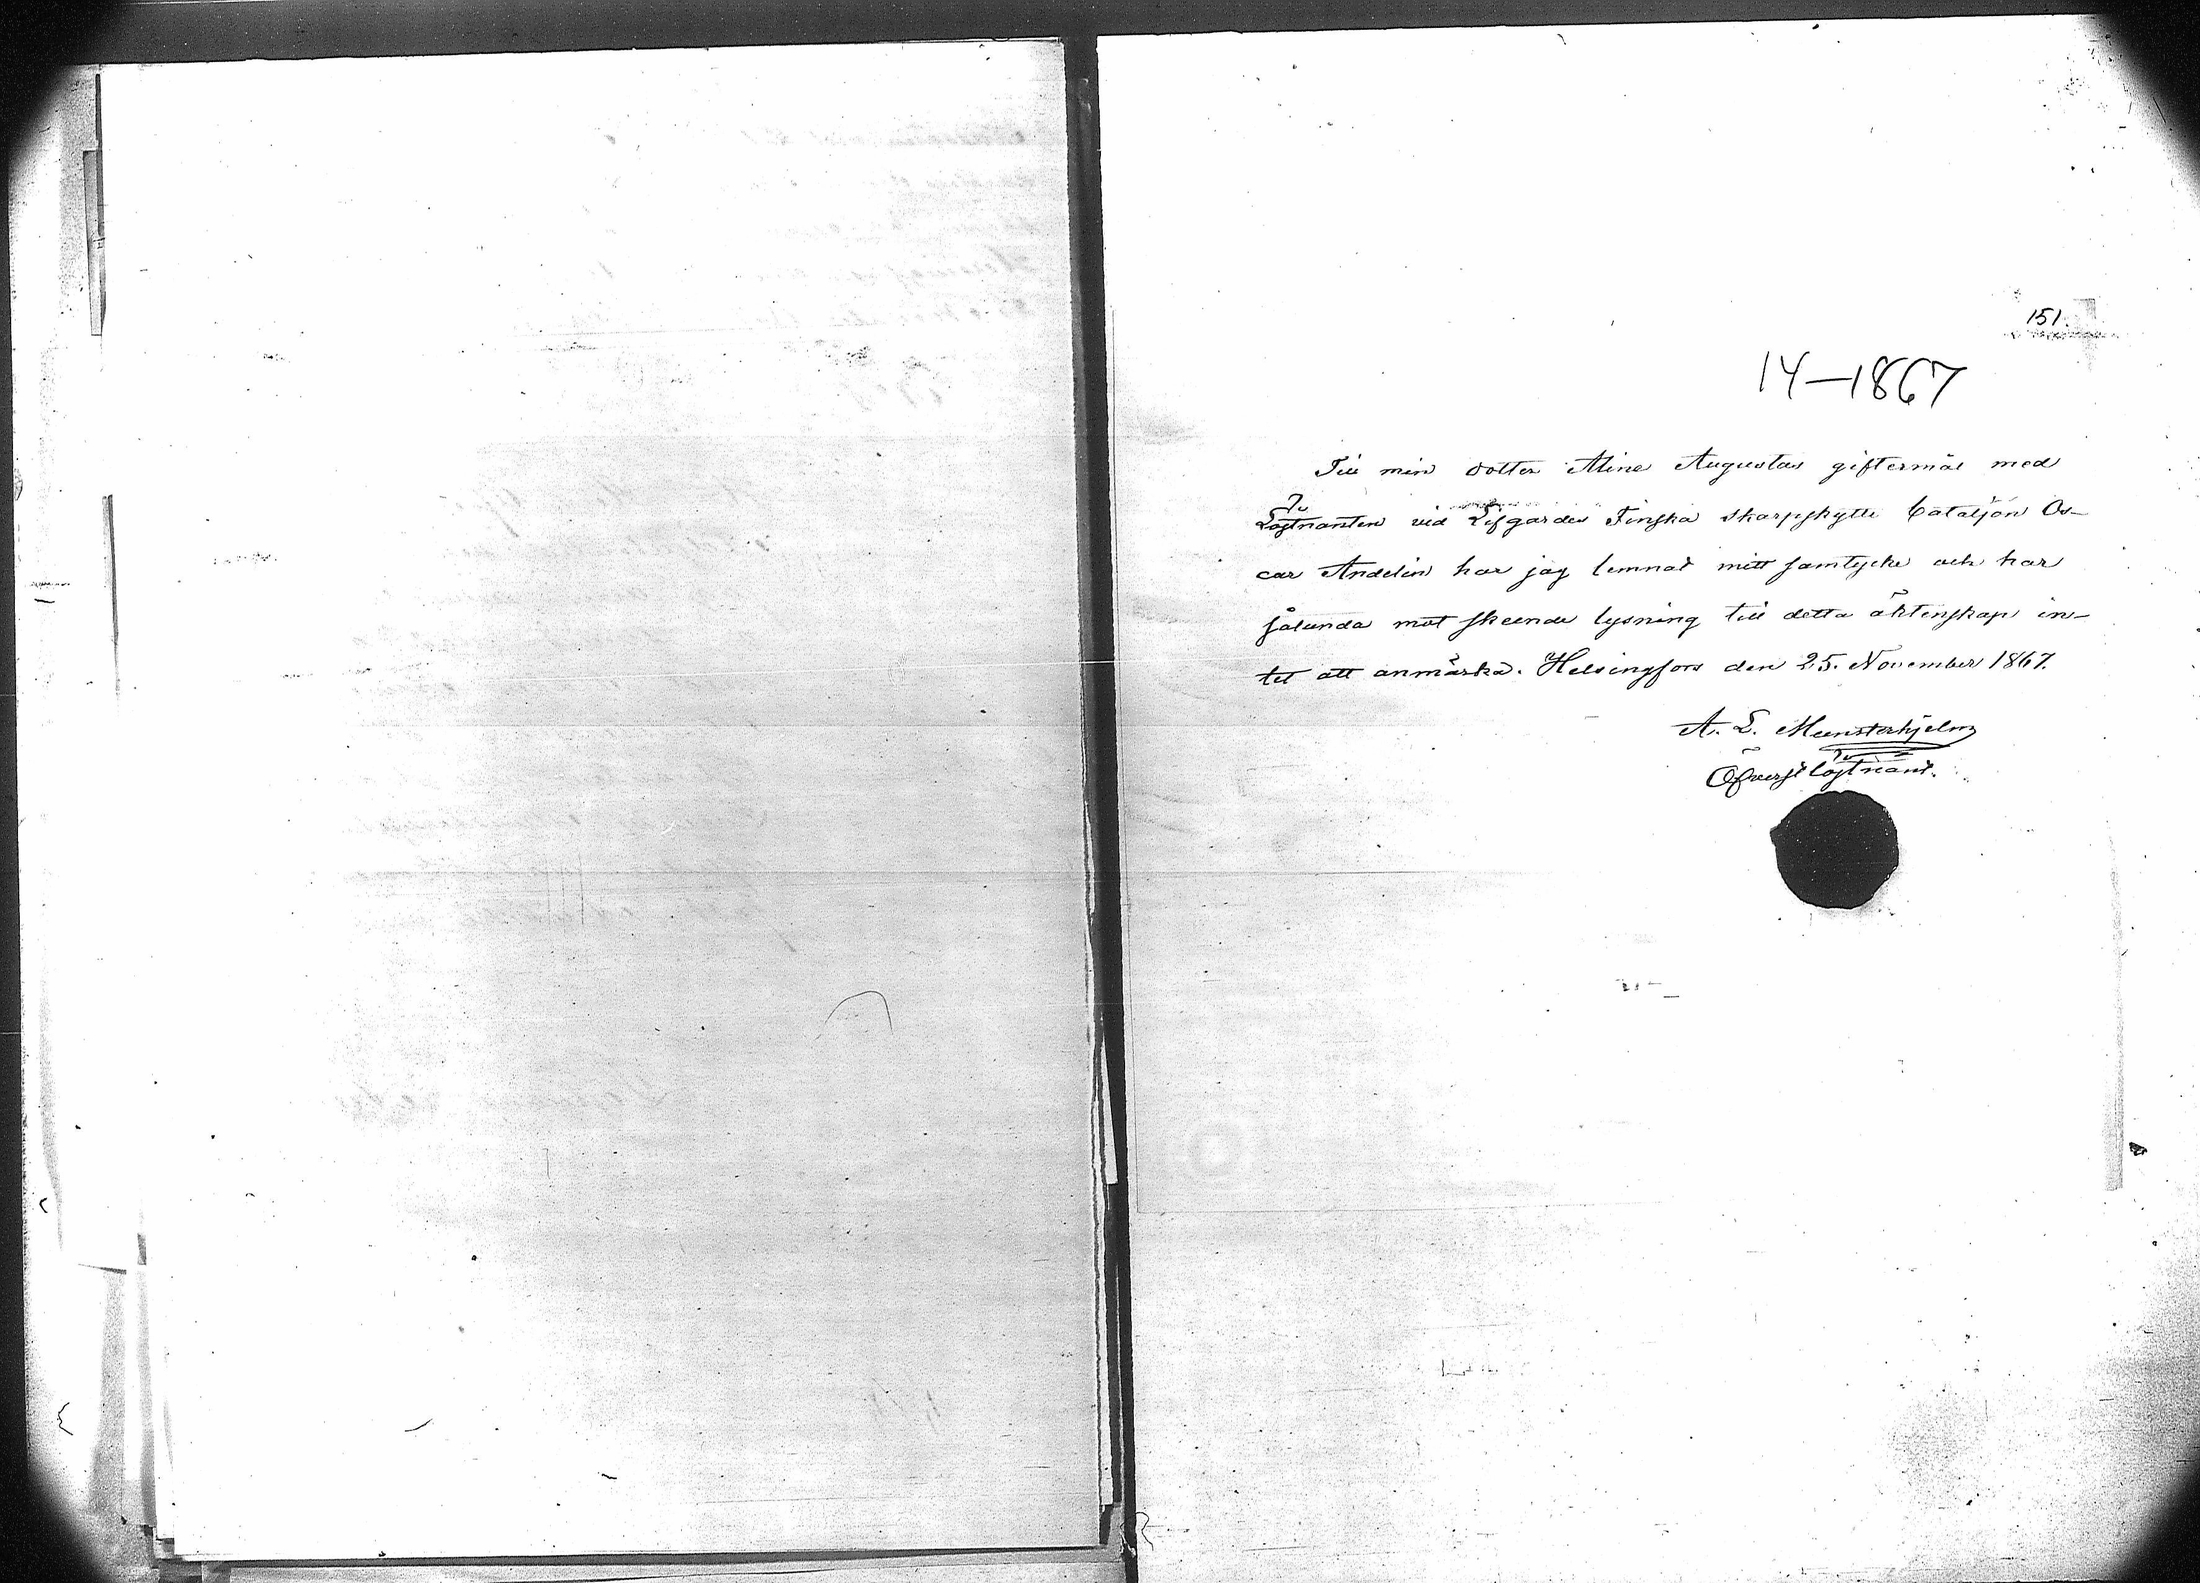 151.
14—1867
Till min dotter Aline Augustas giftermål med
Löjtnanten vid Lifgardes Finska Skarpskytte bataljon Os-
car Andelin har jag lemnat mitt samtycke och har
sålunda mot skeende lysning till detta äktenskap in-
tet att anmärka. Helsingfors den 25. November 1867.
A. L. Munsterhjelm
Öfverstlöjtnant.